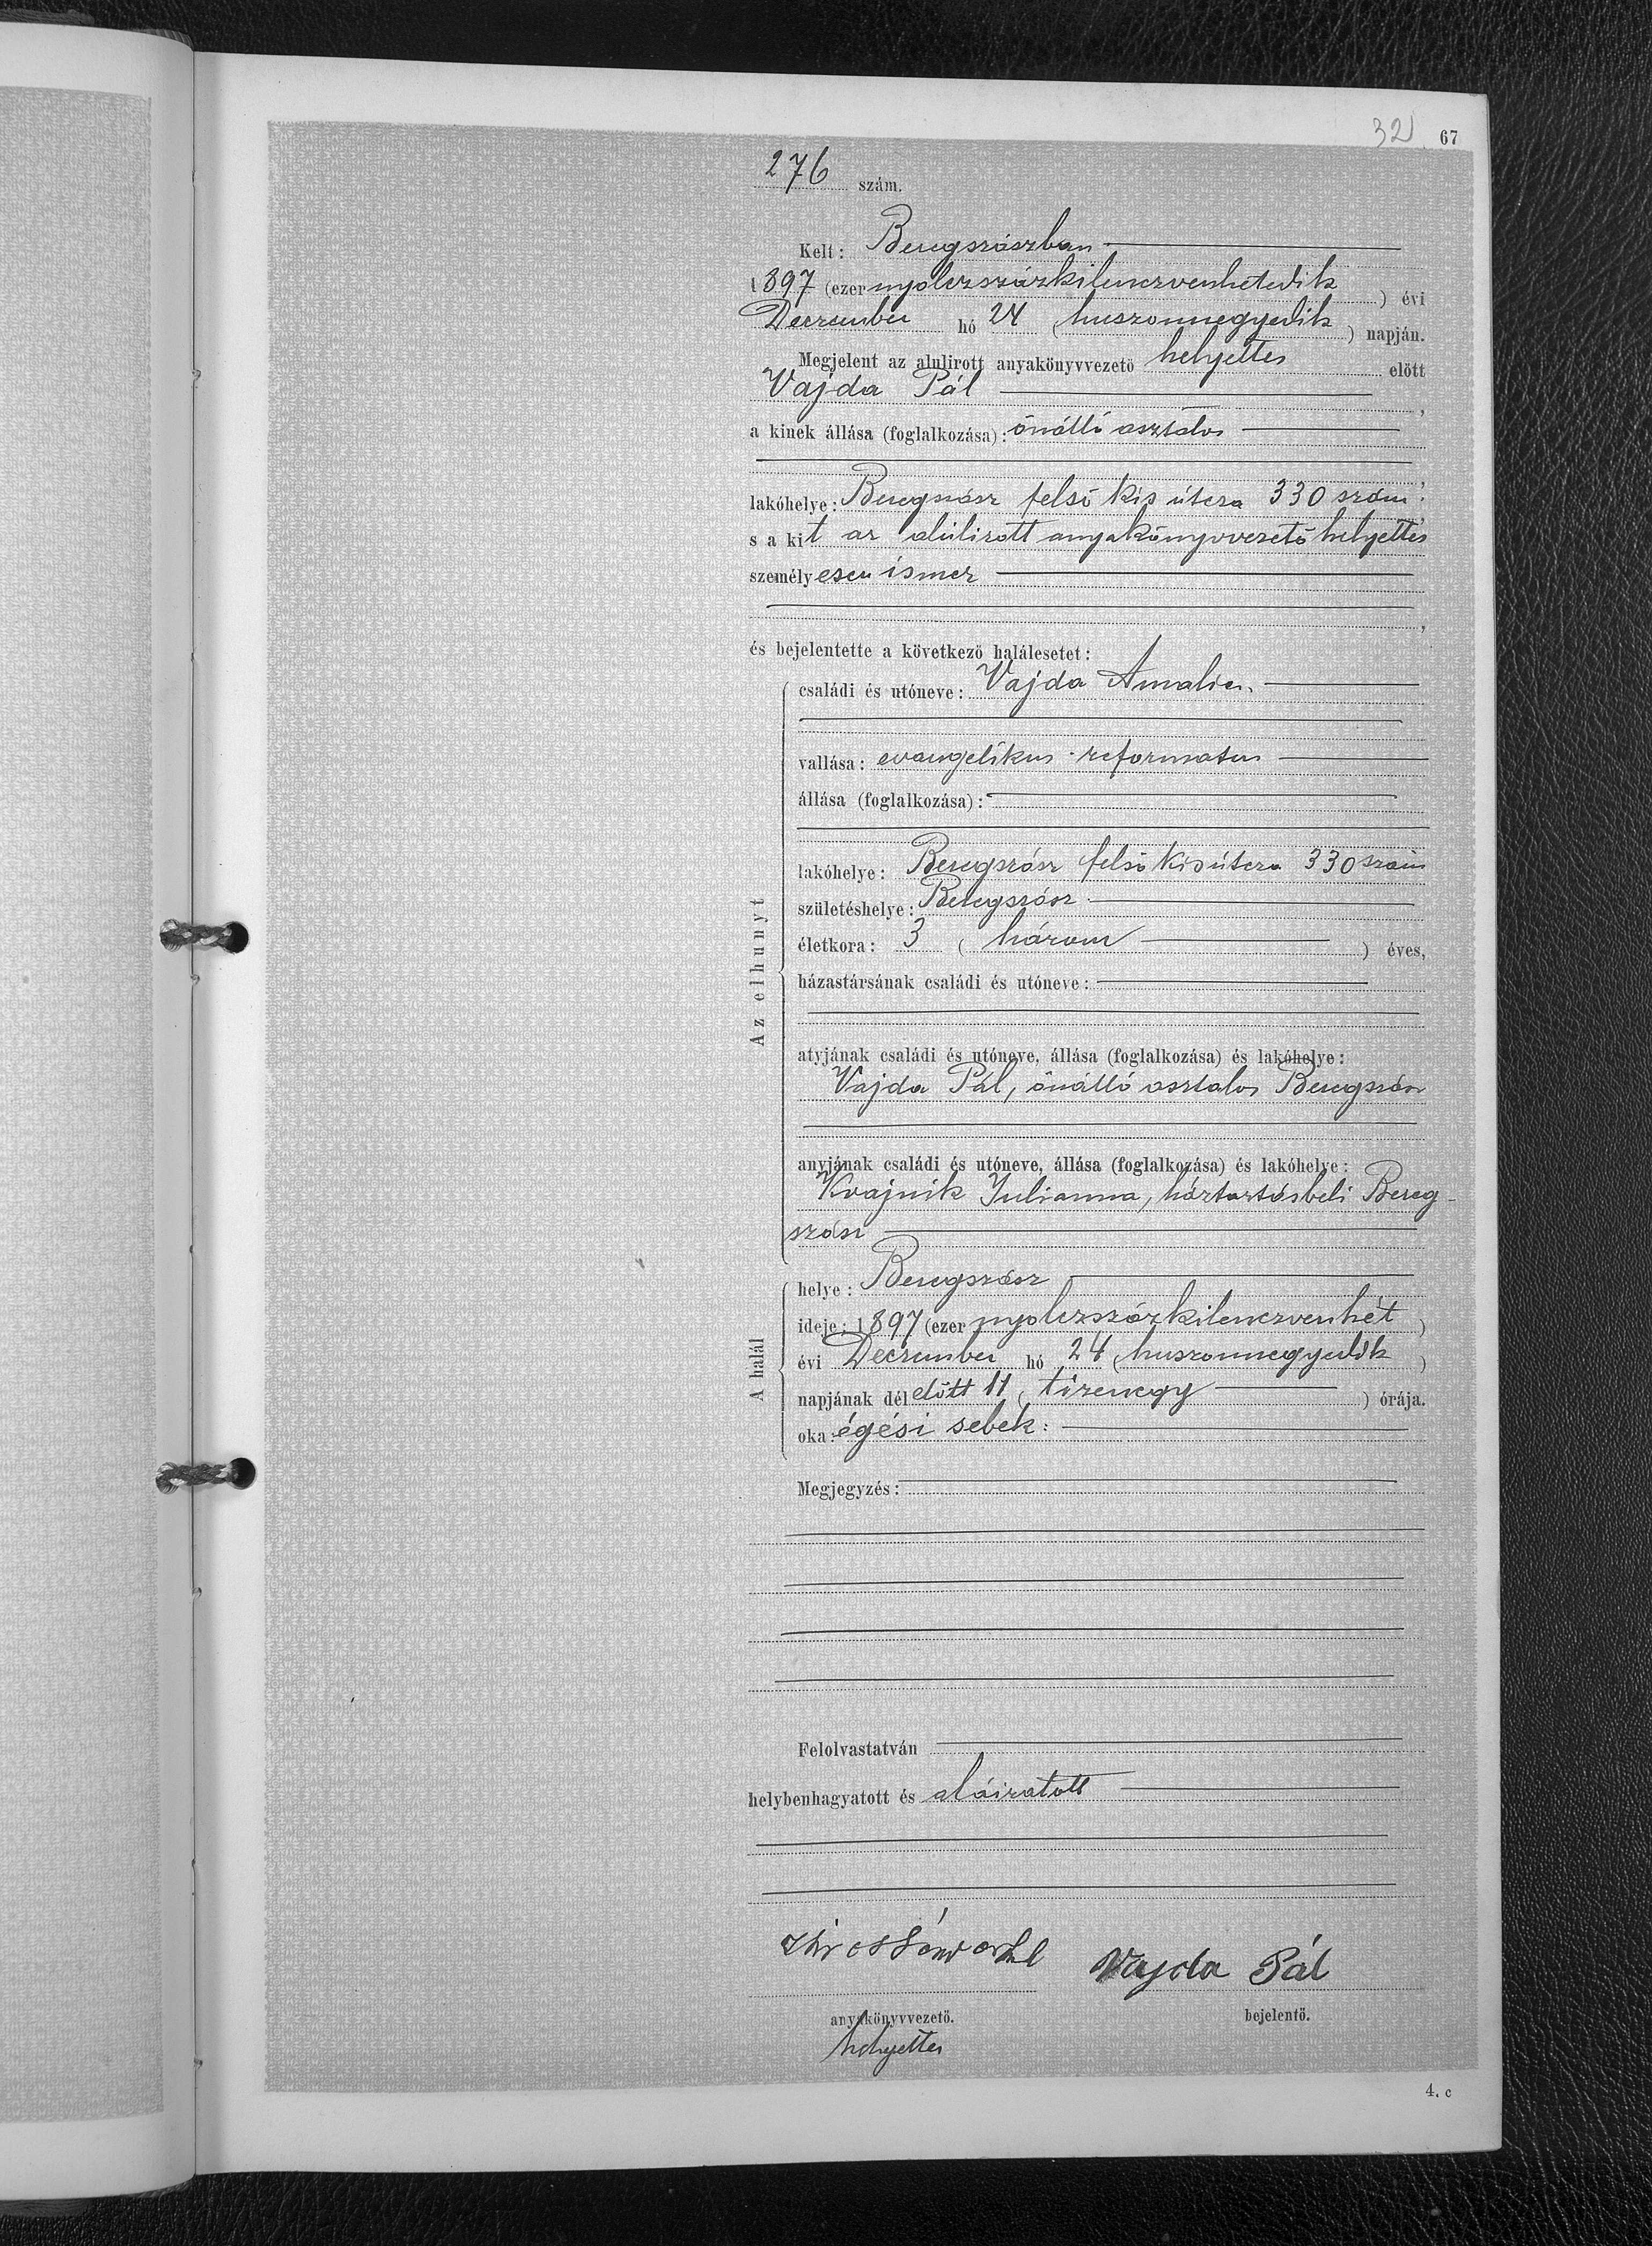 32 67
276 szám.
Kelt: Beregszászban
1897 (ezer nyolczszázkilenczvenhetedik) évi
December hó 24 (huszonnegyedik) napján.
Megjelent az alulirott anyakönyvvezető helyettes előtt
Vajda Pál,
a kinek állása (foglalkozása): önálló asztalos
lakóhelye: Beregszász felső kis útcza 330 szám;
s a kit az alúlirott anyakönyvvezető helyettes
személyesen ismer
,
és bejelentette a következő halálesetet:
Az elhunyt
családi és utóneve: Vajda Amalia.
vallása: evangelikus-reformatus
állása (foglalkozása):
lakóhelye: Beregszász felső kis útcza 330 szám
születéshelye: Beregszász
életkora: 3 (három) éves,
házastársának családi és utóneve:
atyjának családi és utóneve, állása (foglalkozása) és lakóhelye:
Vajda Pál, önálló asztalos Beregszász
anyjának családi és utóneve, állása (foglalkozása) és lakóhelye:
Kvajnik Julianna, háztartásbeli Bereg-
szász
A halál
helye: Beregszász
ideje: 1897 (ezer nyolczszázkilenczvenhét)
évi December hó 24 (huszonnegyedik)
napjának délelőtt 11 (tizenegy) órája.
oka: égési sebek.
Megjegyzés:
Felolvastatván
helybenhagyatott és aláiratott
Vajda Pál
anyakönyvvezető. bejelentő.
helyettes
4. c